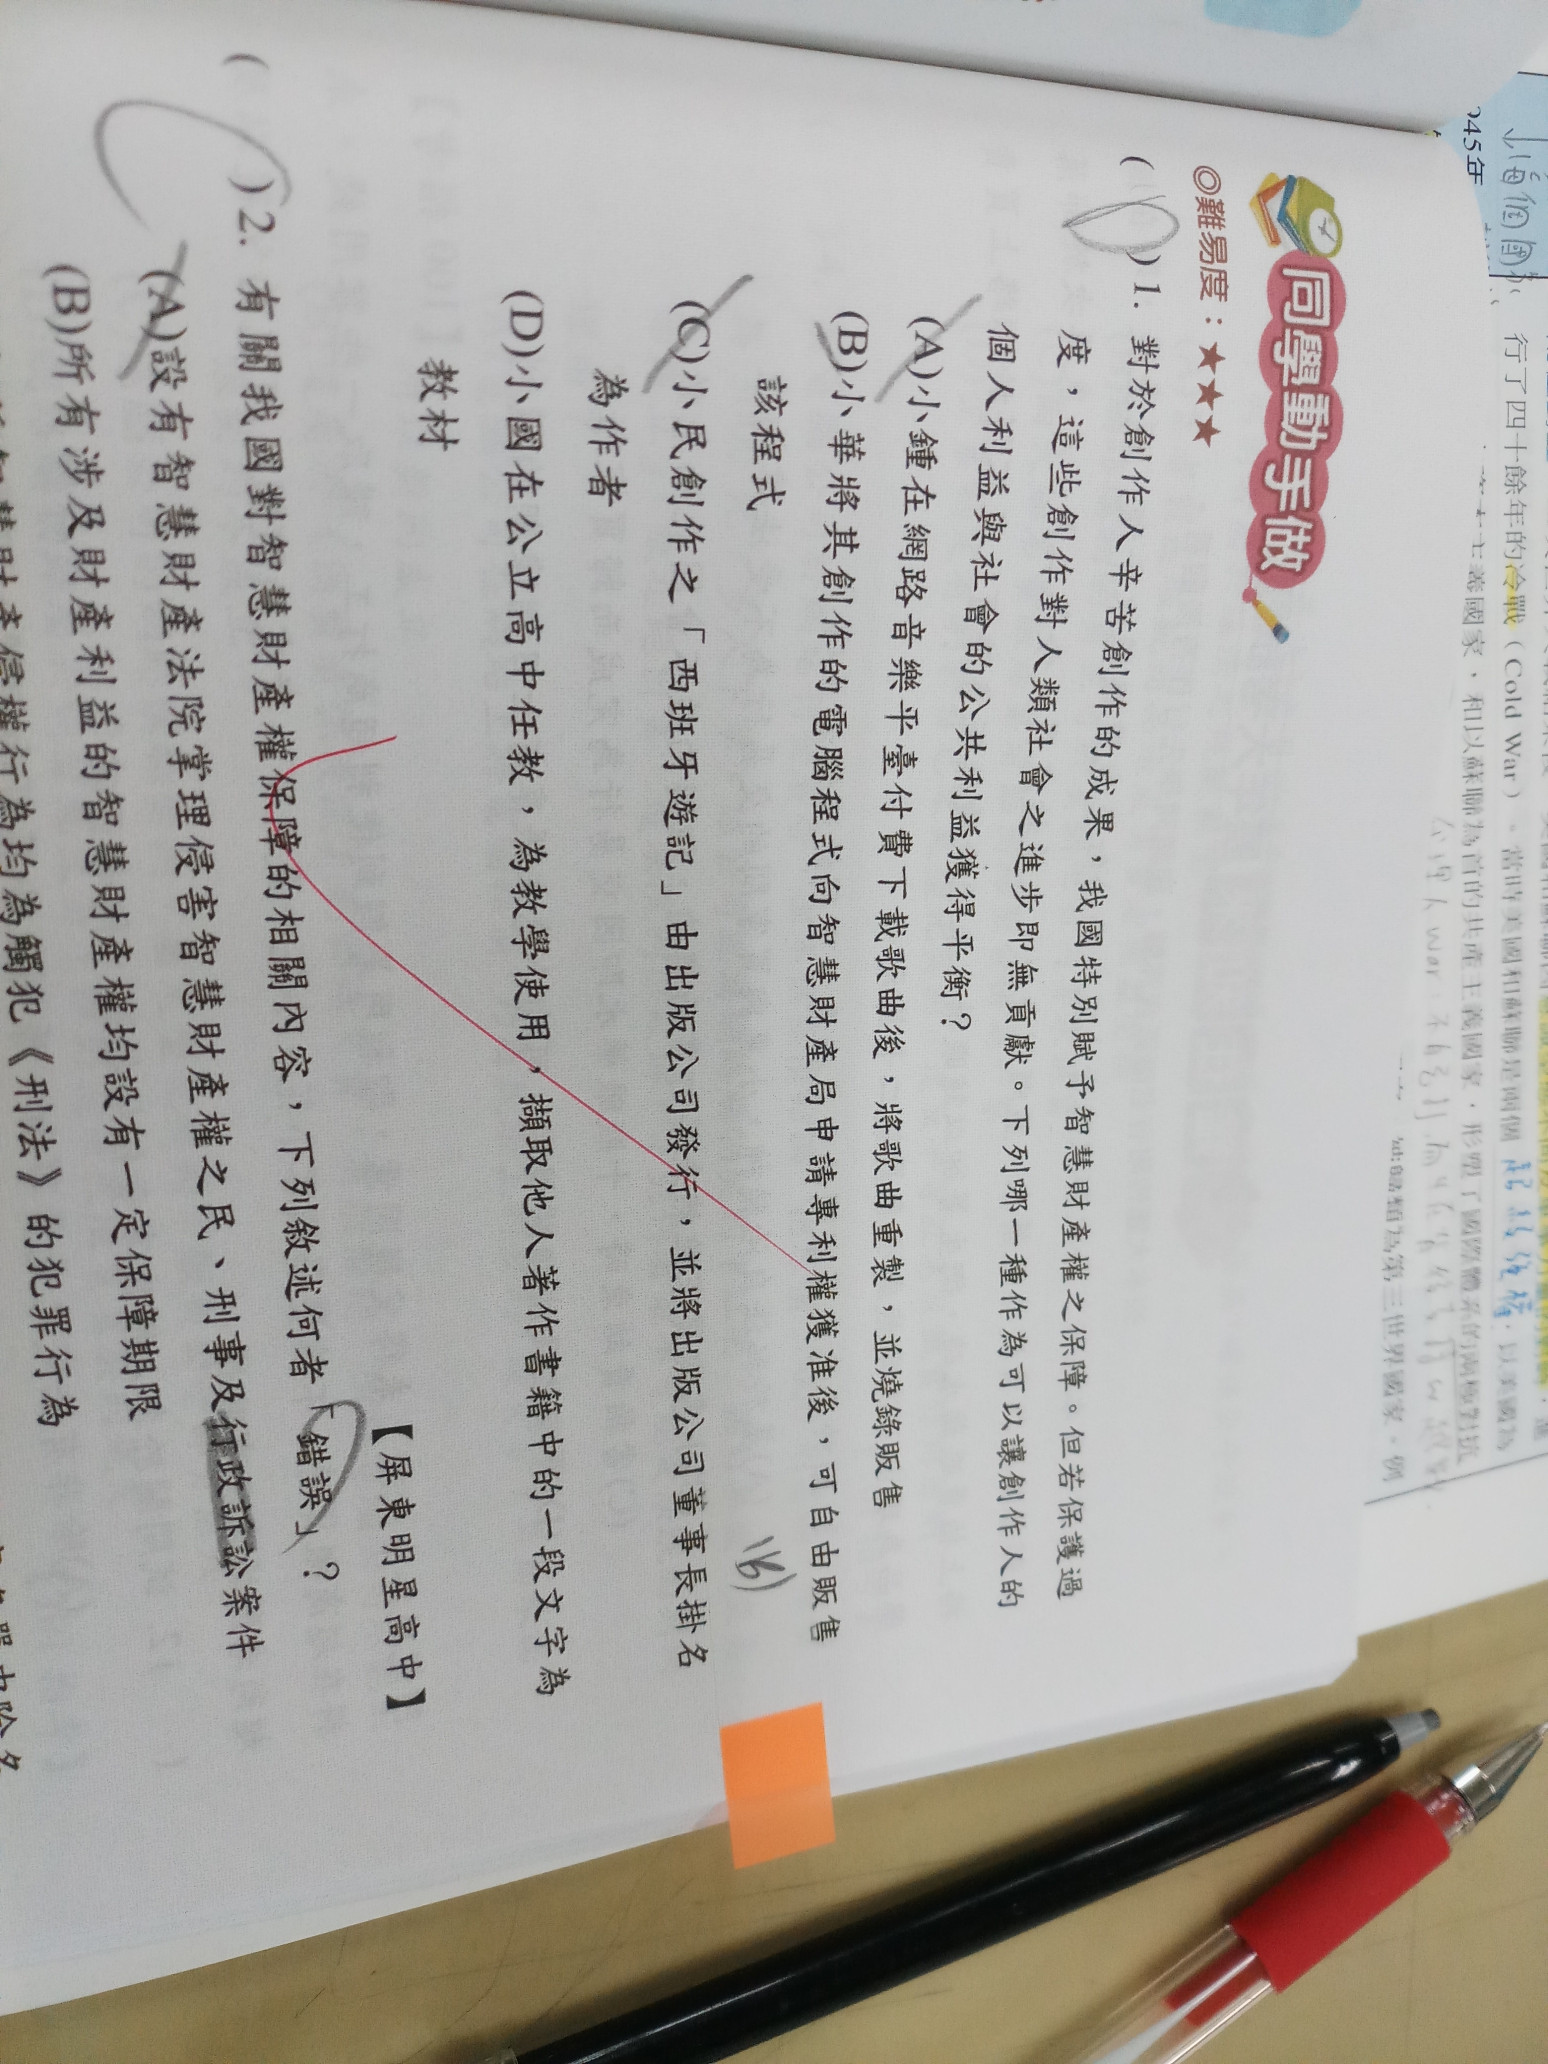 同學動手做
◎難易度：★★★
( D )1. 對於創作人辛苦創作的成果，我國特別賦予智慧財產權之保障。但若保護過
度，這些創作對人類社會之進步即無貢獻。下列哪一種作為可以讓創作人的
個人利益與社會的公共利益獲得平衡？
(A)小鍾在網路音樂平臺付費下載歌曲後，將歌曲重製，並燒錄販售
(B)小華將其創作的電腦程式向智慧財產局申請專利權獲准後，可自由販售
該程式
(B)
(C)小民創作之「西班牙遊記」由出版公司發行，並將出版公司董事長掛名
為作者
(D)小國在公立高中任教，為教學使用，擷取他人著作書籍中的一段文字為
教材
【屏東明星高中】
( C )2. 有關我國對智慧財產權保障的相關內容，下列敘述何者「錯誤」？
(A)設有智慧財產法院掌理侵害智慧財產權之民、刑事及行政訴訟案件
(B)所有涉及財產利益的智慧財產權均設有一定保障期限
智慧財產侵權行為均為觸犯《刑法》的犯罪行為
945年
行了四十餘年的冷戰（Cold War）。當時美國和蘇聯是兩個
主義國家，和以蘇聯為首的共產主義國家，形塑了國際體系的兩極對抗
第三世界國家，例